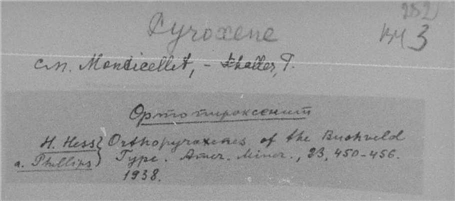 282
Pyroxene
KM 3
см. Monticellit, – Thaller, T.
Ортопироксениты
H. Hess } Orthopyroxenes of the Bushveld
a. Phillips } Type. Amer. Miner., 23, 450-456.
1938.